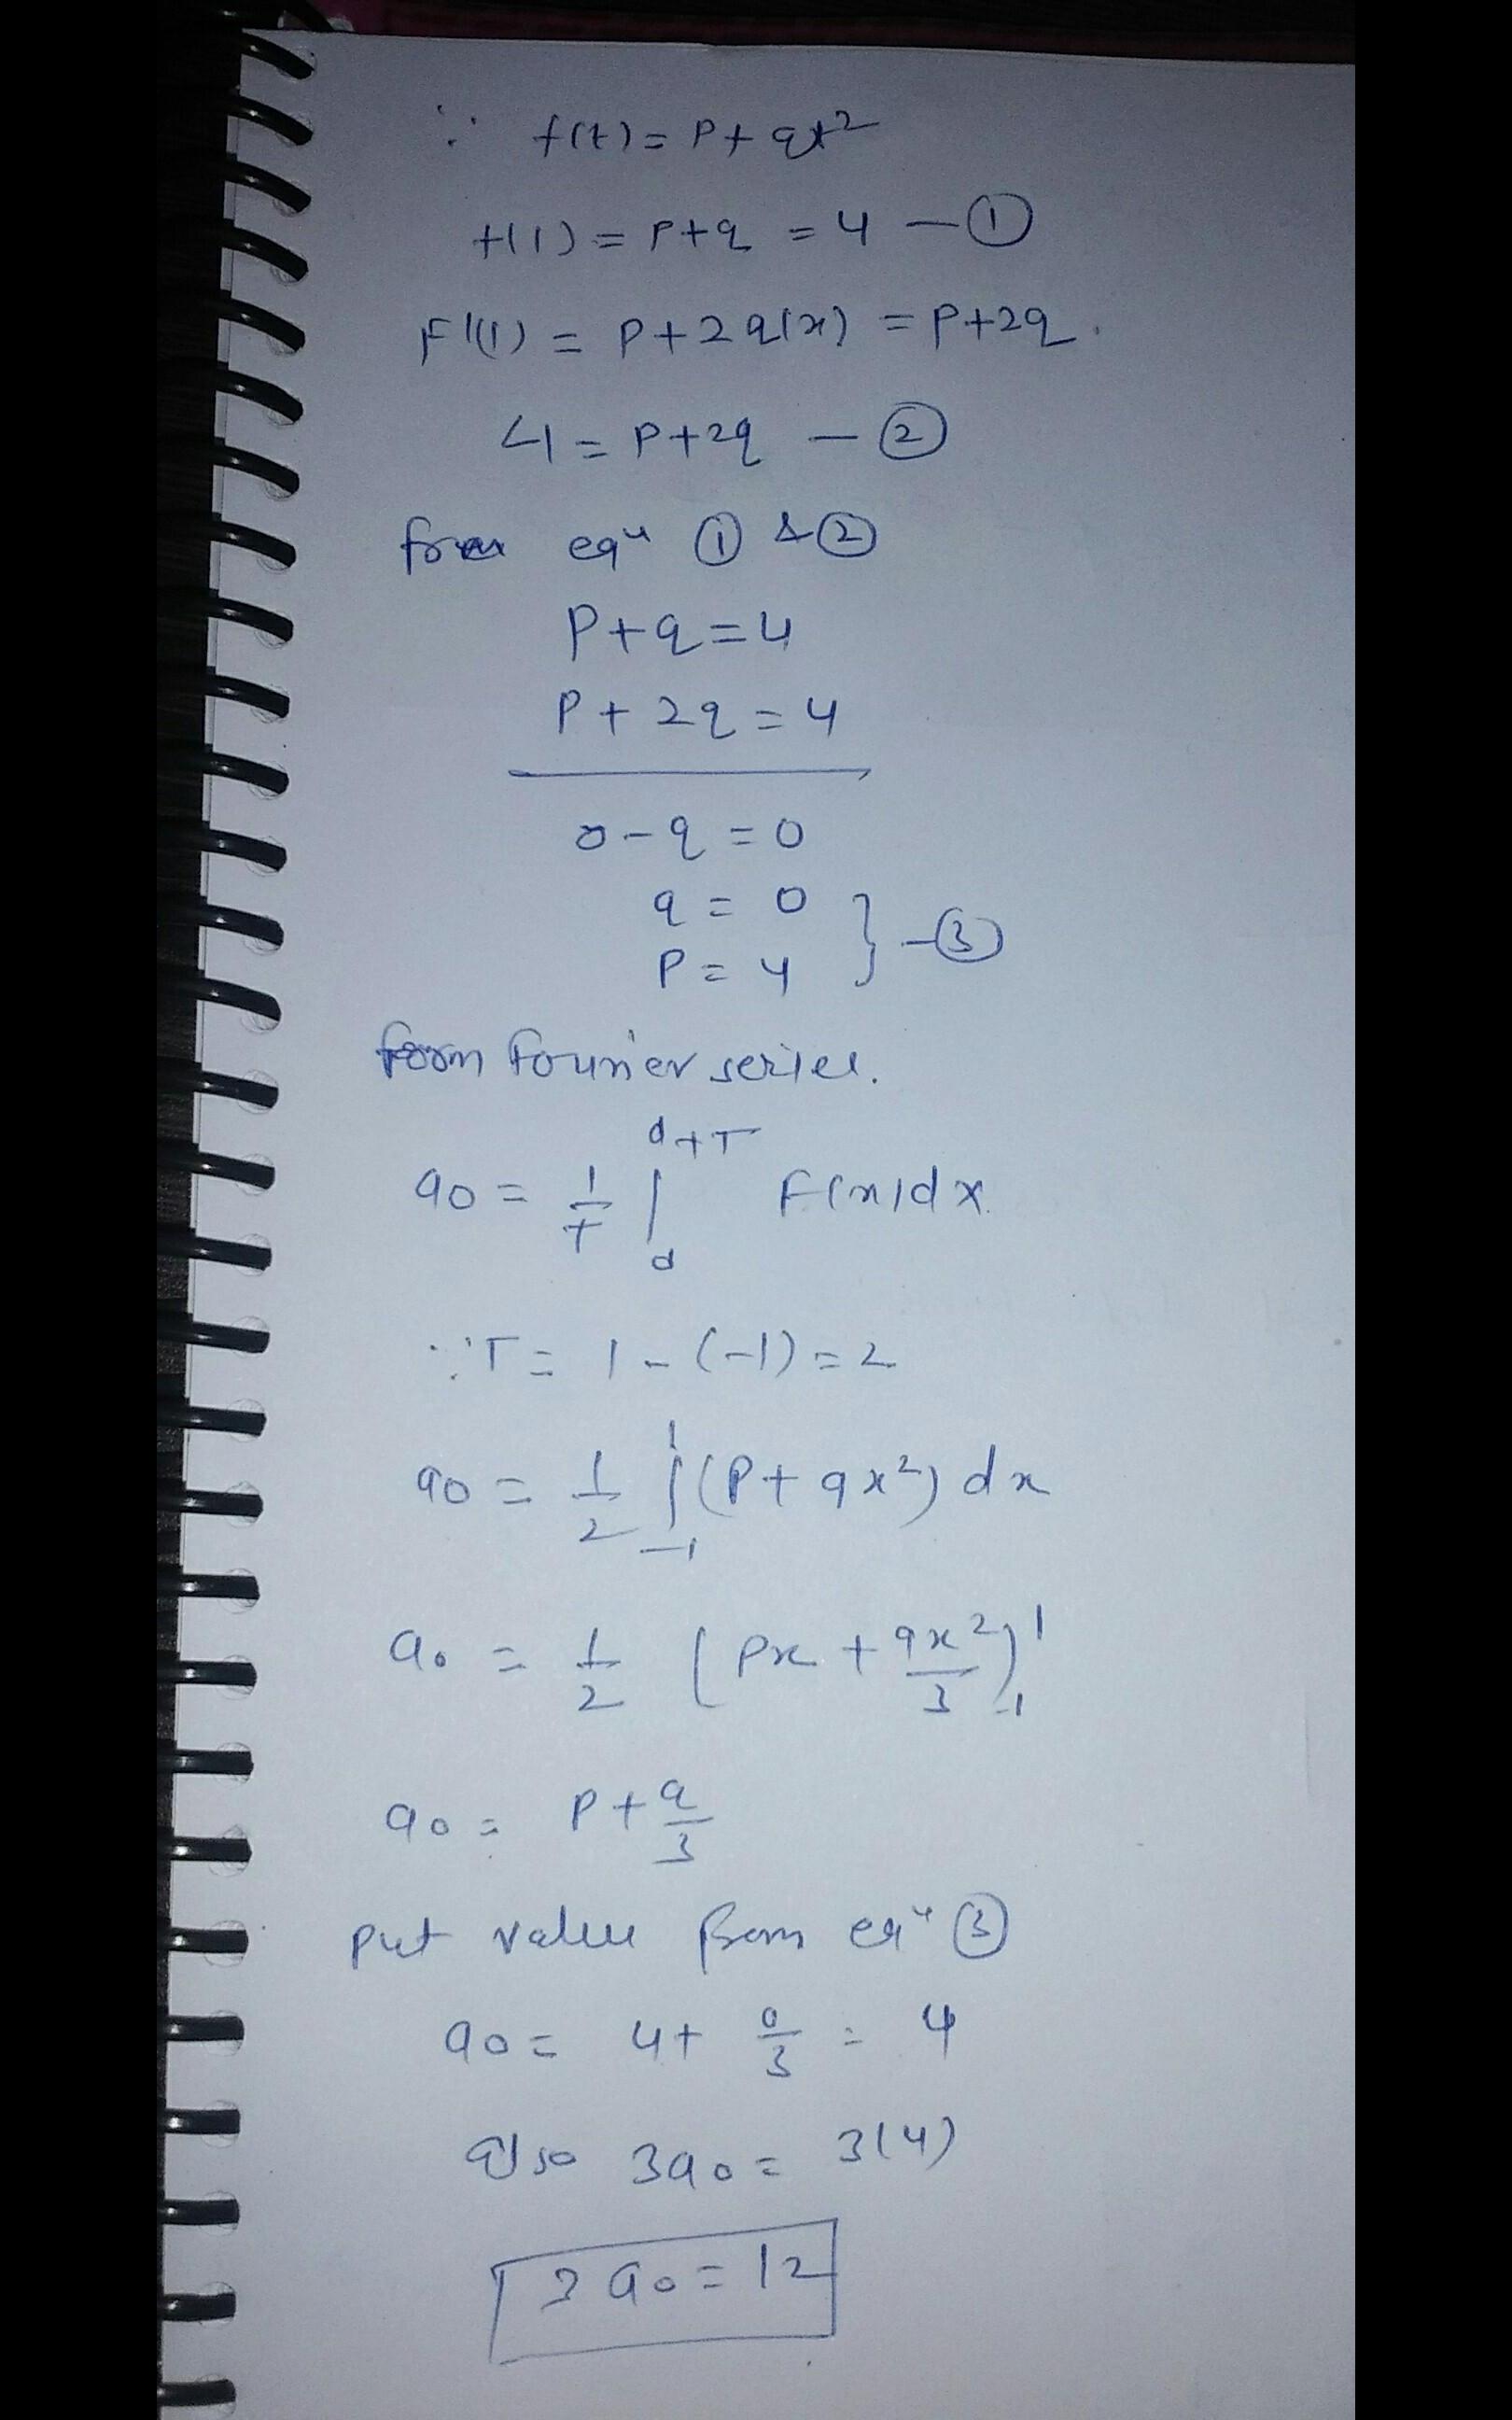 ∵ f(t) = P + qt²
f(1) = P+q = 4 — ①
F'(1) = P+2q(x) = P+2q.
4 = P+2q — ②
from eqⁿ ① & ②
P+q=4
P+2q=4
0-q=0
q=0
P=4 } -③
from fourier series.
a0 = 1/T ∫_d^{d+T} F(x)dx.
∵ T = 1-(-1) = 2
a0 = 1/2 ∫_{-1}^{1} (P+qx²)dx
a0 = 1/2 (Px + qx²/3)_{-1}^{1}
a0 = P+q/3
put value from eqⁿ ③
a0 = 4+ 0/3 = 4
also 3a0 = 3(4)
3a0 = 12